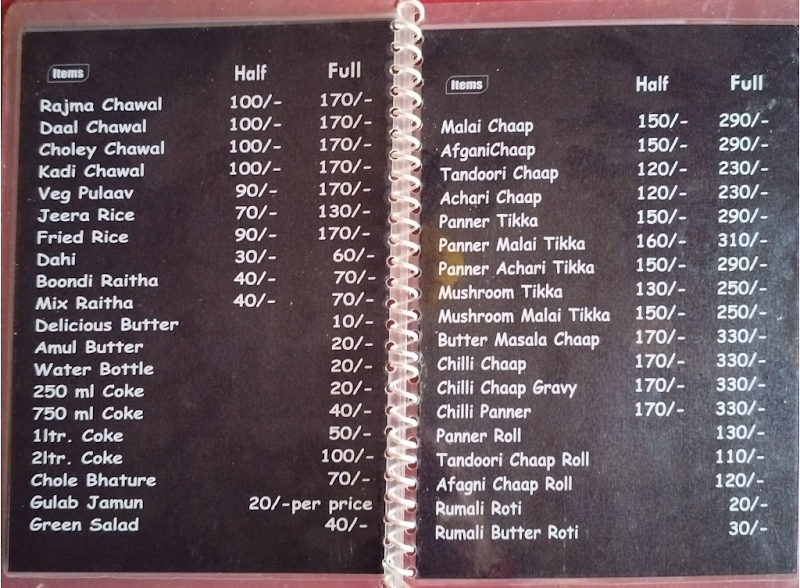 Items Half Full
Rajma Chawal 100/- 170/-
Daal Chawal 100/- 170/-
Choley Chawal 100/- 170/-
Kadi Chawal 100/- 170/-
Veg Pulaav 90/- 170/-
Jeera Rice 70/- 130/-
Fried Rice 90/- 170/-
Dahi 30/- 60/-
Boondi Raitha 40/- 70/-
Mix Raitha 40/- 70/-
Delicious Butter 10/-
Amul Butter 20/-
Water Bottle 20/-
250 ml Coke 20/-
750 ml Coke 40/-
1ltr. Coke 50/-
2ltr. Coke 100/-
Chole Bhature 70/-
Gulab Jamun 20/-per price
Green Salad 40/-
Items Half Full
Malai Chaap 150/- 290/-
AfganiChaap 150/- 290/-
Tandoori Chaap 120/- 230/-
Achari Chaap 120/- 230/-
Panner Tikka 150/- 290/-
Panner Malai Tikka 160/- 310/-
Panner Achari Tikka 150/- 290/-
Mushroom Tikka 130/- 250/-
Mushroom Malai Tikka 150/- 250/-
Butter Masala Chaap 170/- 330/-
Chilli Chaap 170/- 330/-
Chilli Chaap Gravy 170/- 330/-
Chilli Panner 170/- 330/-
Panner Roll 130/-
Tandoori Chaap Roll 110/-
Afagni Chaap Roll 120/-
Rumali Roti 20/-
Rumali Butter Roti 30/-